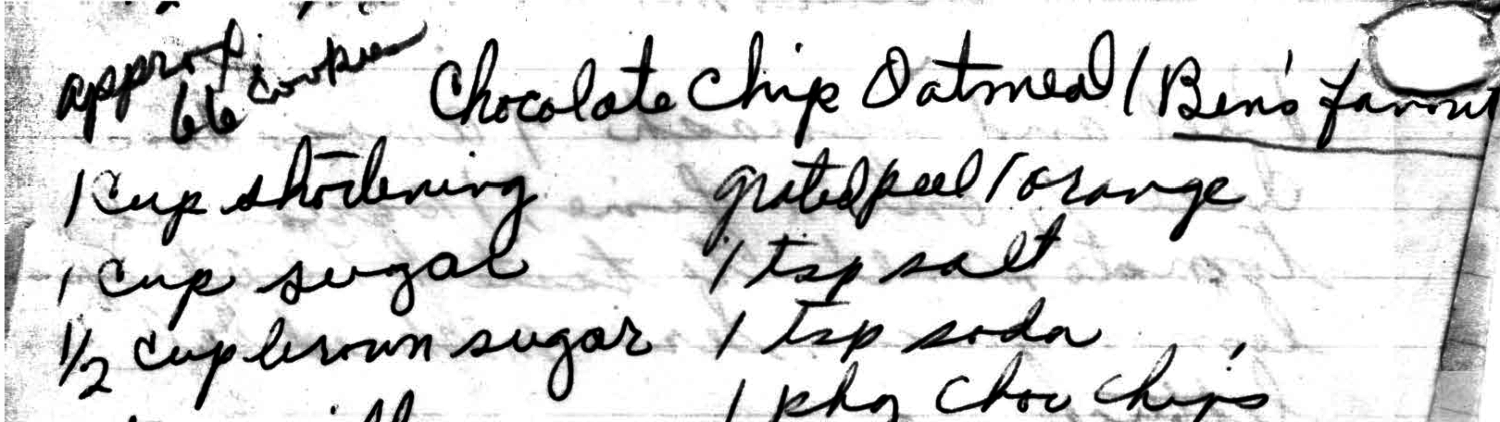 approx
66 cookies
Chocolate Chip Oatmeal / Ben's
1 cup shortening
1 cup sugar
1/2 cup brown sugar
grated peel 1 orange
1 tsp salt
1 tsp soda
1 pkg choc chips